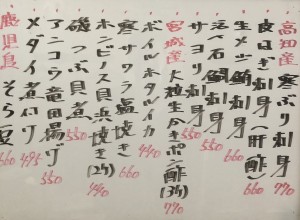 高知産 寒ぶり刺身 770
良はぎ刺身(肝酢) 660
生メジ鮪刺身 660
活べ石鯛刺身 550
サヨリ刺身 550
宮城産 大粒生かきポン酢(3ケ) 770
ボイルホタルイカ 440
寒サワラ塩焼き 660
ホンビノス貝浜焼き(2ケ) 440
磯つぶ貝煮 550
アンコウ竜田揚げ 550
メダイ煮付 495
鹿児島 そら豆 660